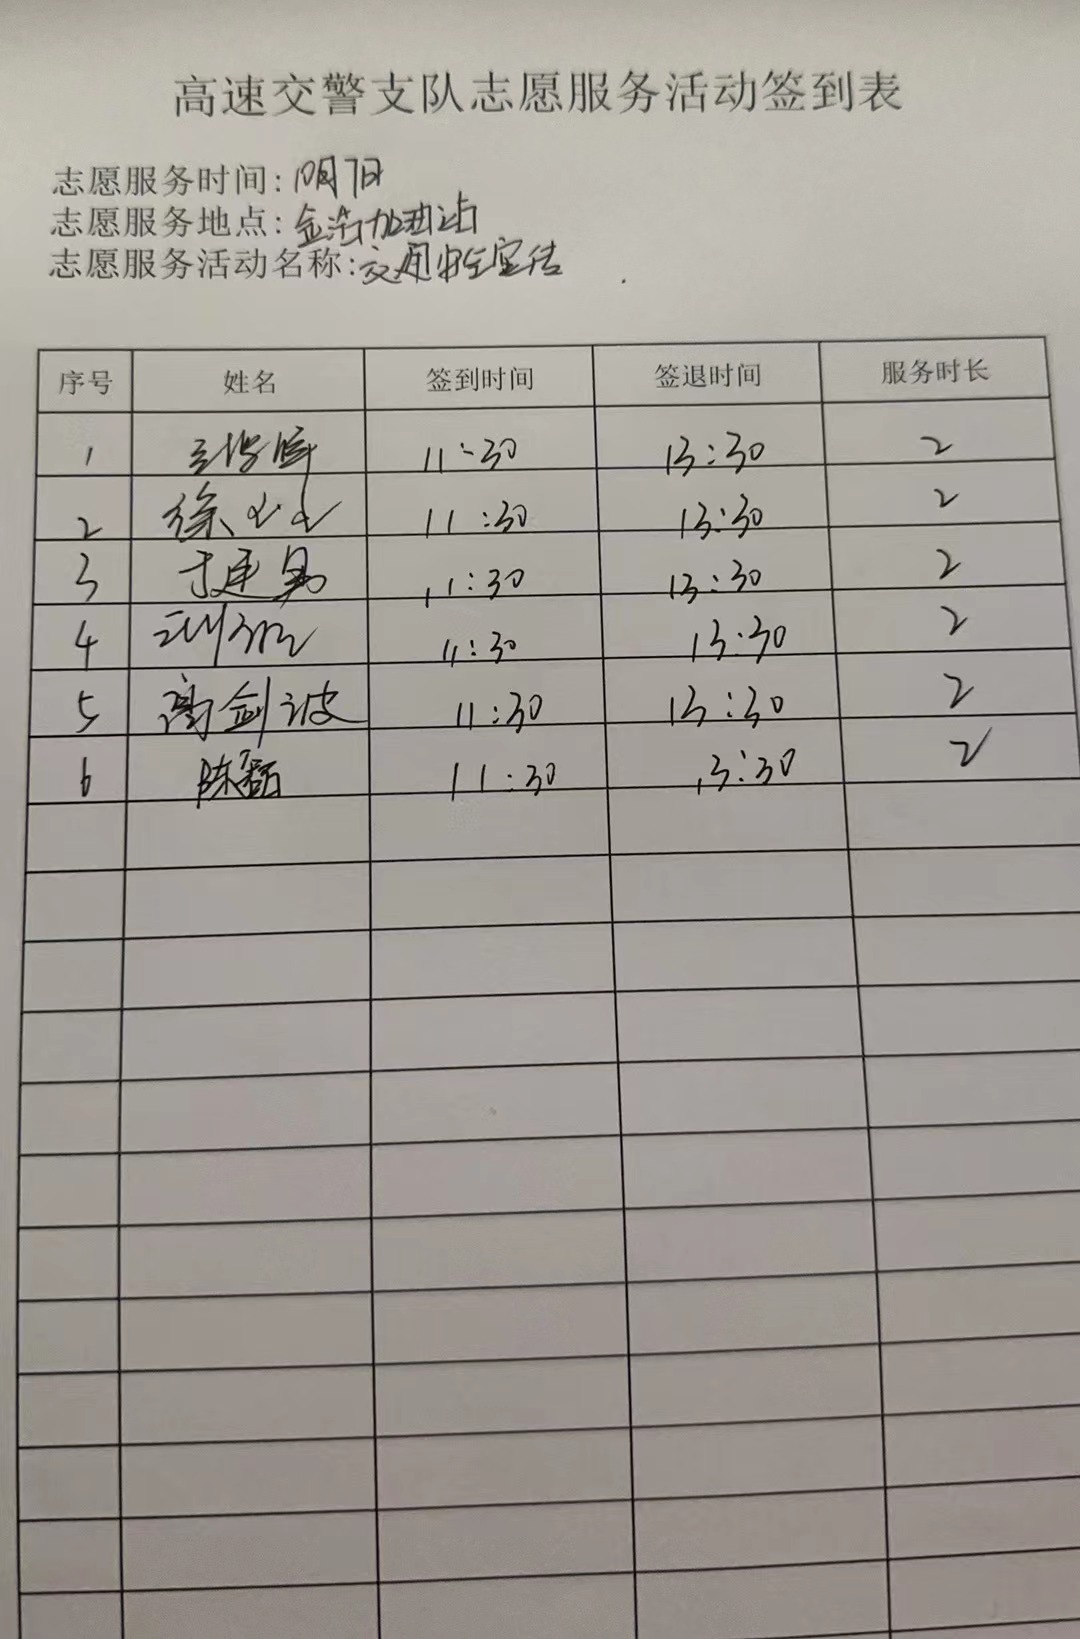 高速交警支队志愿服务活动签到表
志愿服务时间:10月7日
志愿服务地点:金浩加油站
志愿服务活动名称:交通安全宣传
序号 姓名 签到时间 签退时间 服务时长
1 11:30 13:30 2
2 徐 11:30 13:30 2
3 于延勇 11:30 13:30 2
4 11:30 13:30 2
5 高剑波 11:30 13:30 2
6 陈磊 11:30 13:30 2